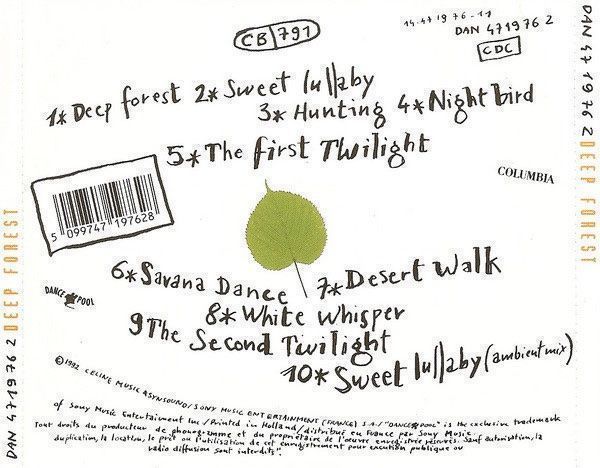 CB 791
14-471976-11
DAN 471976 2
CDC
1* Deep forest 2* Sweet lullaby
3* Hunting 4* Night bird
5* The first Twilight
COLUMBIA
5 099747 197628
6* Savana Dance 7* Desert Walk
DANCE POOL
8* White Whisper
9 The Second Twilight
10* Sweet lullaby (ambient mix)
© 1992 CELINE MUSIC & SYNSOUND / SONY MUSIC ENTERTAINMENT (FRANCE) S.A. / "DANCE POOL" is the exclusive trademark
of Sony Music Entertainment Inc / Printed in Holland / distribué en France par Sony Music.
Tout droits du producteur de phonogramme et du propriétaire de l'œuvre enregistrée réservés. Sauf autorisation, la
duplication, la location, le prêt ou l'utilisation de cet enregistrement pour exécution publique ou
radio diffusion sont interdits".
DAN 471976 2 DEEP FOREST
DAN 471976 2 DEEP FOREST